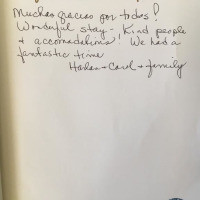 Muchas gracias por todos!
Wonderful stay - Kind people
+ accomodations! We had a
fantastic time
+ Carol + family